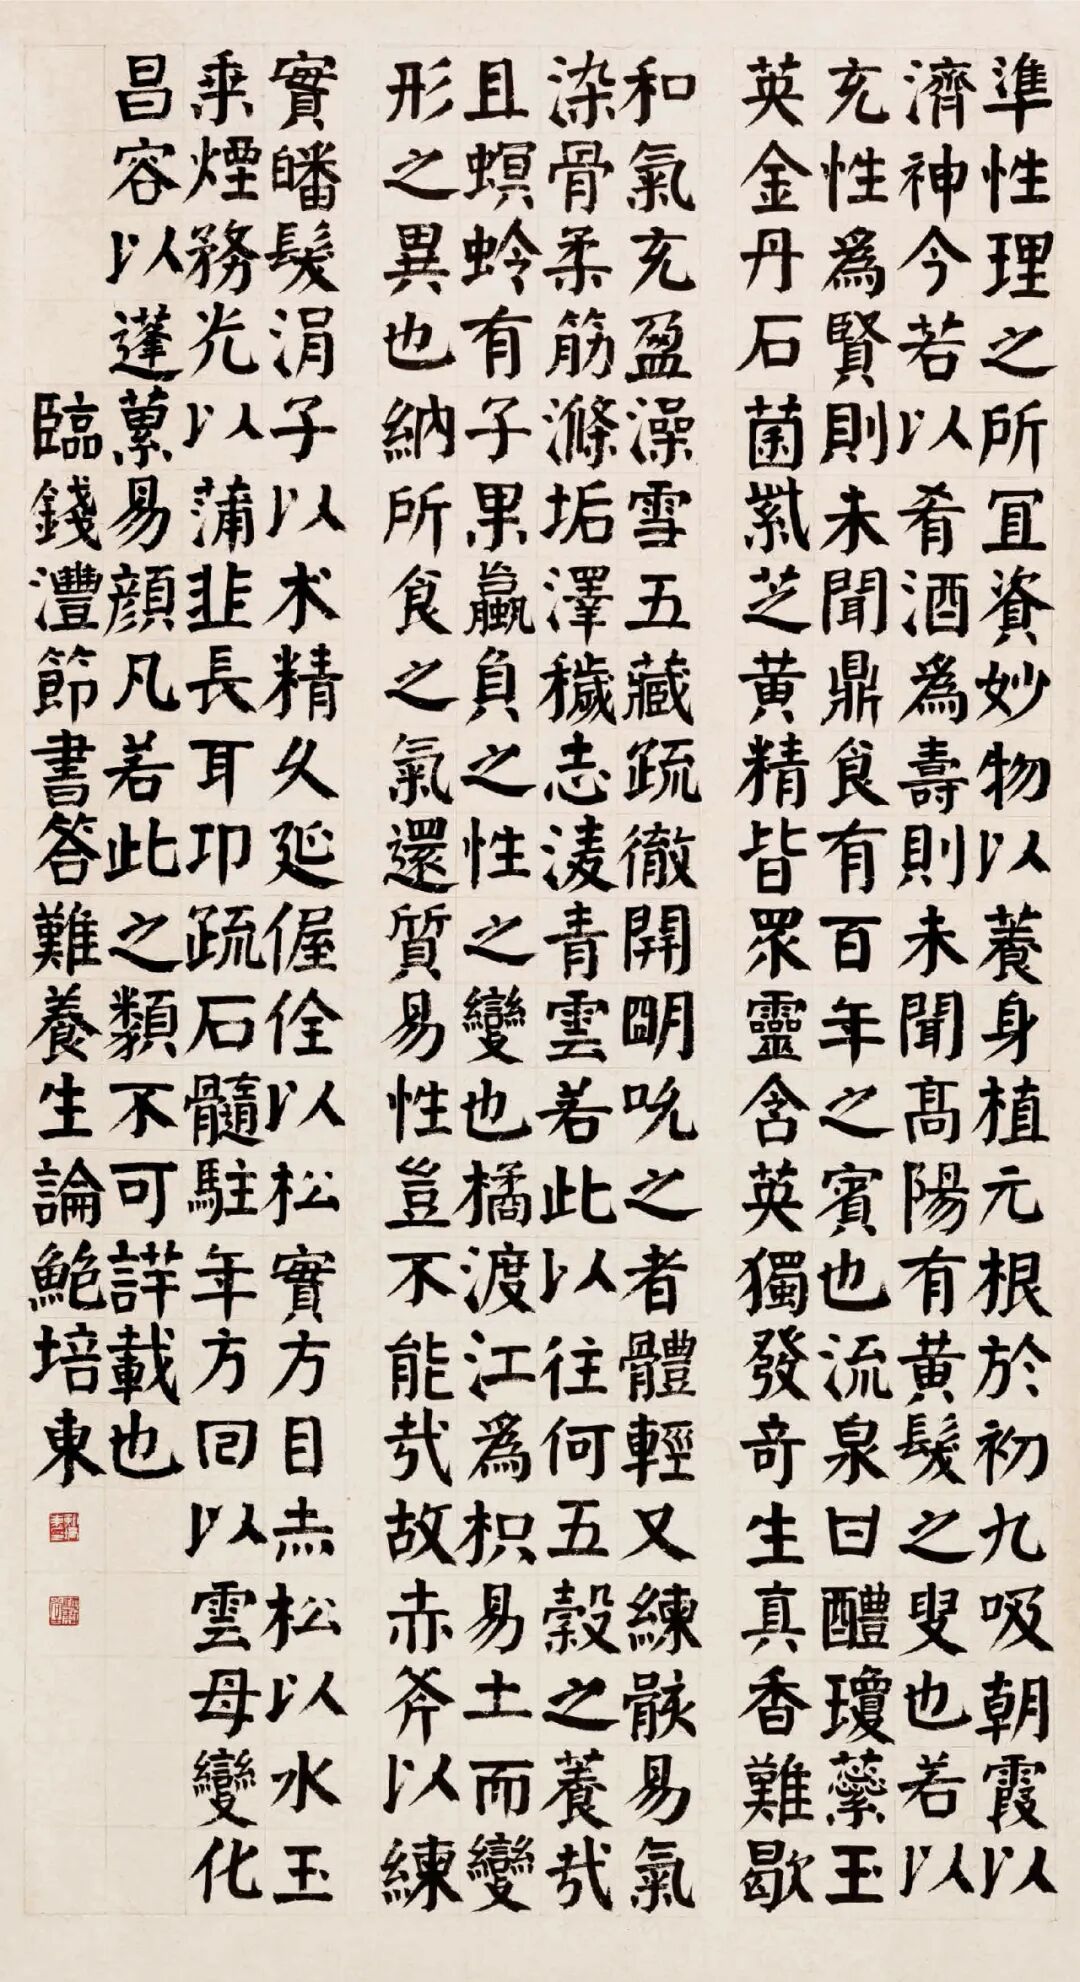 準性理之所宜資妙物以養身植元根於初九吸朝霞以
濟神今若以肴酒為壽則未聞高陽有黃髮之叟也若以
充性為賢則未聞鼎食有百年之賓也流泉曰醴瓊蘂玉
英金丹石菌紫芝黃精皆眾靈含英獨發奇生真香難歇
和氣充盈澡雪五藏疏徹開明吮之者體輕又練骸易氣
染骨柔筋滌垢澤穢志淩青雲若此以往何五穀之養哉
且螟蛉有子果蠃負之性之變也橘渡江為枳易土而變
形之異也納所食之氣還質易性豈不能哉故赤斧以練
實皤髮涓子以术精久延偓佺以松實方目赤松以水玉
乘煙務光以蒲韭長耳卭疏石髓駐年方回以雲母變化
昌容以蓬蔂易顏凡若此之類不可詳載也
臨錢灃節書答難養生論鮑培東